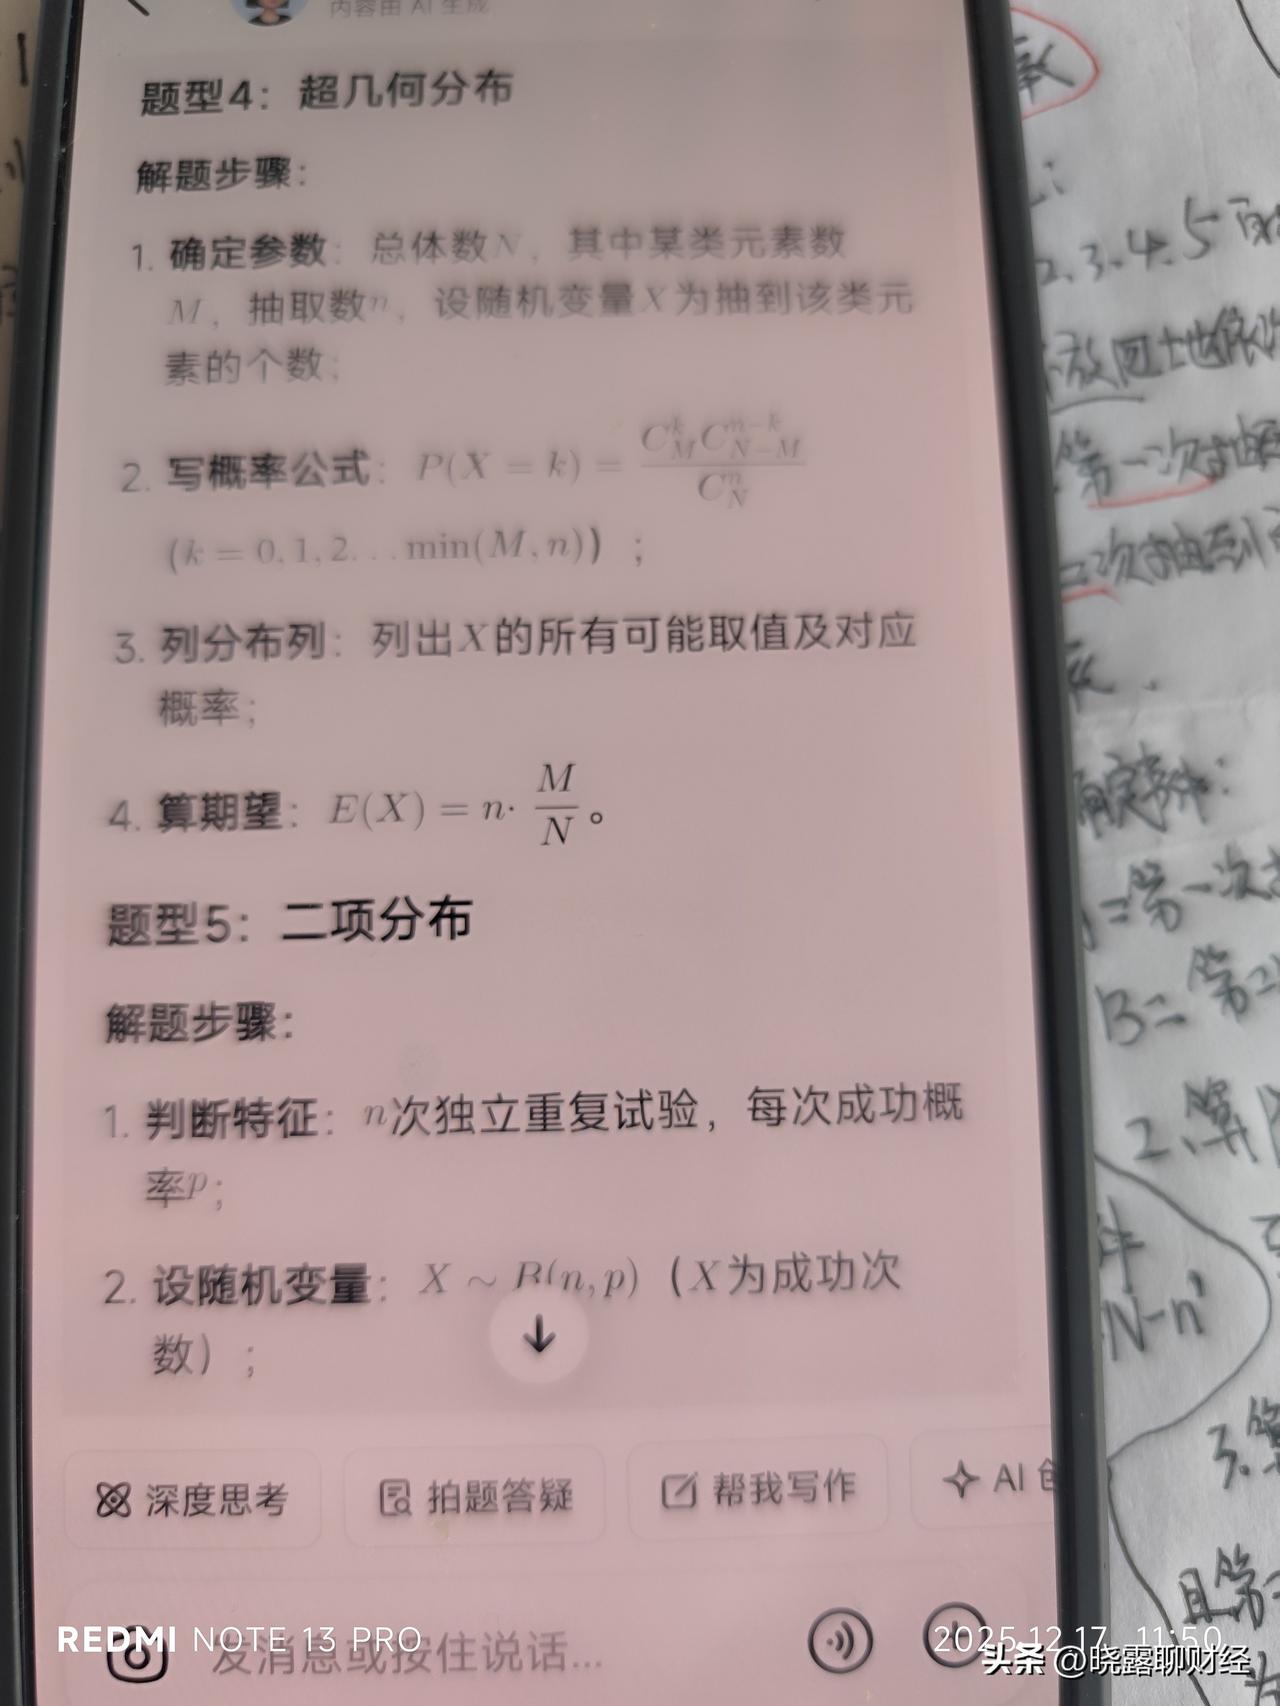 内容由 AI 生成
题型4：超几何分布
解题步骤：
1. 确定参数：总体数N，其中某类元素数
M，抽取数n，设随机变量X为抽到该类元
素的个数；
2. 写概率公式：P(X = k) = \frac{C_M^k C_{N-M}^{n-k}}{C_N^n}
(k = 0,1,2...min(M,n)) ；
3. 列分布列：列出X的所有可能取值及对应
概率；
4. 算期望：E(X) = n· \frac{M}{N}。
题型5：二项分布
解题步骤：
1. 判断特征：n次独立重复试验，每次成功概
率p；
2. 设随机变量：X ~ B(n,p)（X为成功次
数）；
深度思考
拍题答疑
帮我写作
AI 创
发消息或按住说话...
2.3.4.5
放回地依次
第一次抽
二次抽到
事件：
=第一次
B=第二
2.算
件
N-n
3.算
且第
REDMI NOTE 13 PRO
2025.12.17 11:50
头条 @晓露聊财经